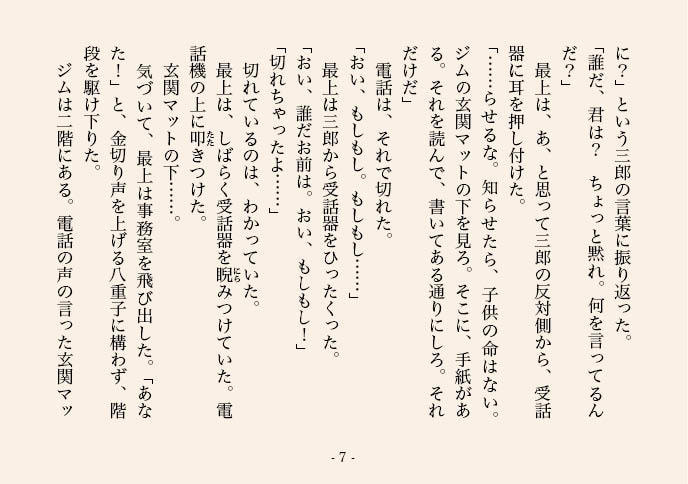 に？」という三郎の言葉に振り返った。
「誰だ、君は？　ちょっと黙れ。何を言ってるん
だ？」
　最上は、あ、と思って三郎の反対側から、受話
器に耳を押し付けた。
「……らせるな。知らせたら、子供の命はない。
ジムの玄関マットの下を見ろ。そこに、手紙があ
る。それを読んで、書いてある通りにしろ。それ
だけだ」
　電話は、それで切れた。
「おい、もしもし。もしもし……」
　最上は三郎から受話器をひったくった。
「おい、誰だお前は。おい、もしもし！」
「切れちゃったよ……」
　切れているのは、わかっていた。
　最上は、しばらく受話器を睨にらみつけていた。電
話機の上に叩たたきつけた。
　玄関マットの下……。
　気づいて、最上は事務室を飛び出した。「あな
た！」と、金切り声を上げる八重子に構わず、階
段を駆け下りた。
　ジムは二階にある。電話の声の言った玄関マッ
- 7 -